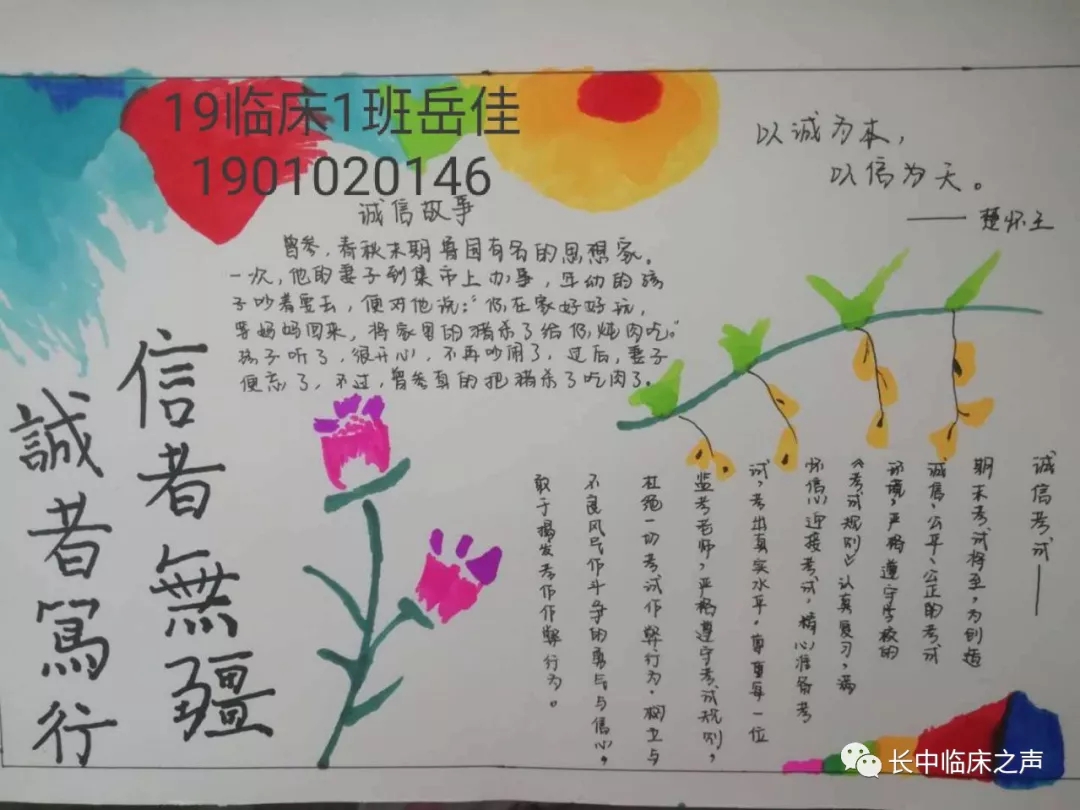 19临床1班岳佳
1901020146
诚信故事
曾参，春秋末期鲁国有名的思想家。
一次，他的妻子到集市上办事，年幼的孩
子吵着要去，便对他说：“你在家好好玩，
等妈妈回来，将家里的猪杀了给你炖肉吃。”
孩子听了，很开心，不再吵闹了，过后，妻子
便忘了，不过，曾参真的把猪杀了吃肉了。
以诚为本，
以信为天。
——楚怀王
信者無疆
誠者篤行
诚信考试——
期末考试将至，为创造
诚信、公平、公正的考试
环境，严格遵守学校的
《考试规则》认真复习，满
怀信心迎接考试，精心准备考
试，考出真实水平。尊重每一位
监考老师，严格遵守考试规则，
杜绝一切考试作弊行为。树立与
不良风气作斗争的勇气与信心，
敢于揭发考作作弊行为。
长中临床之声